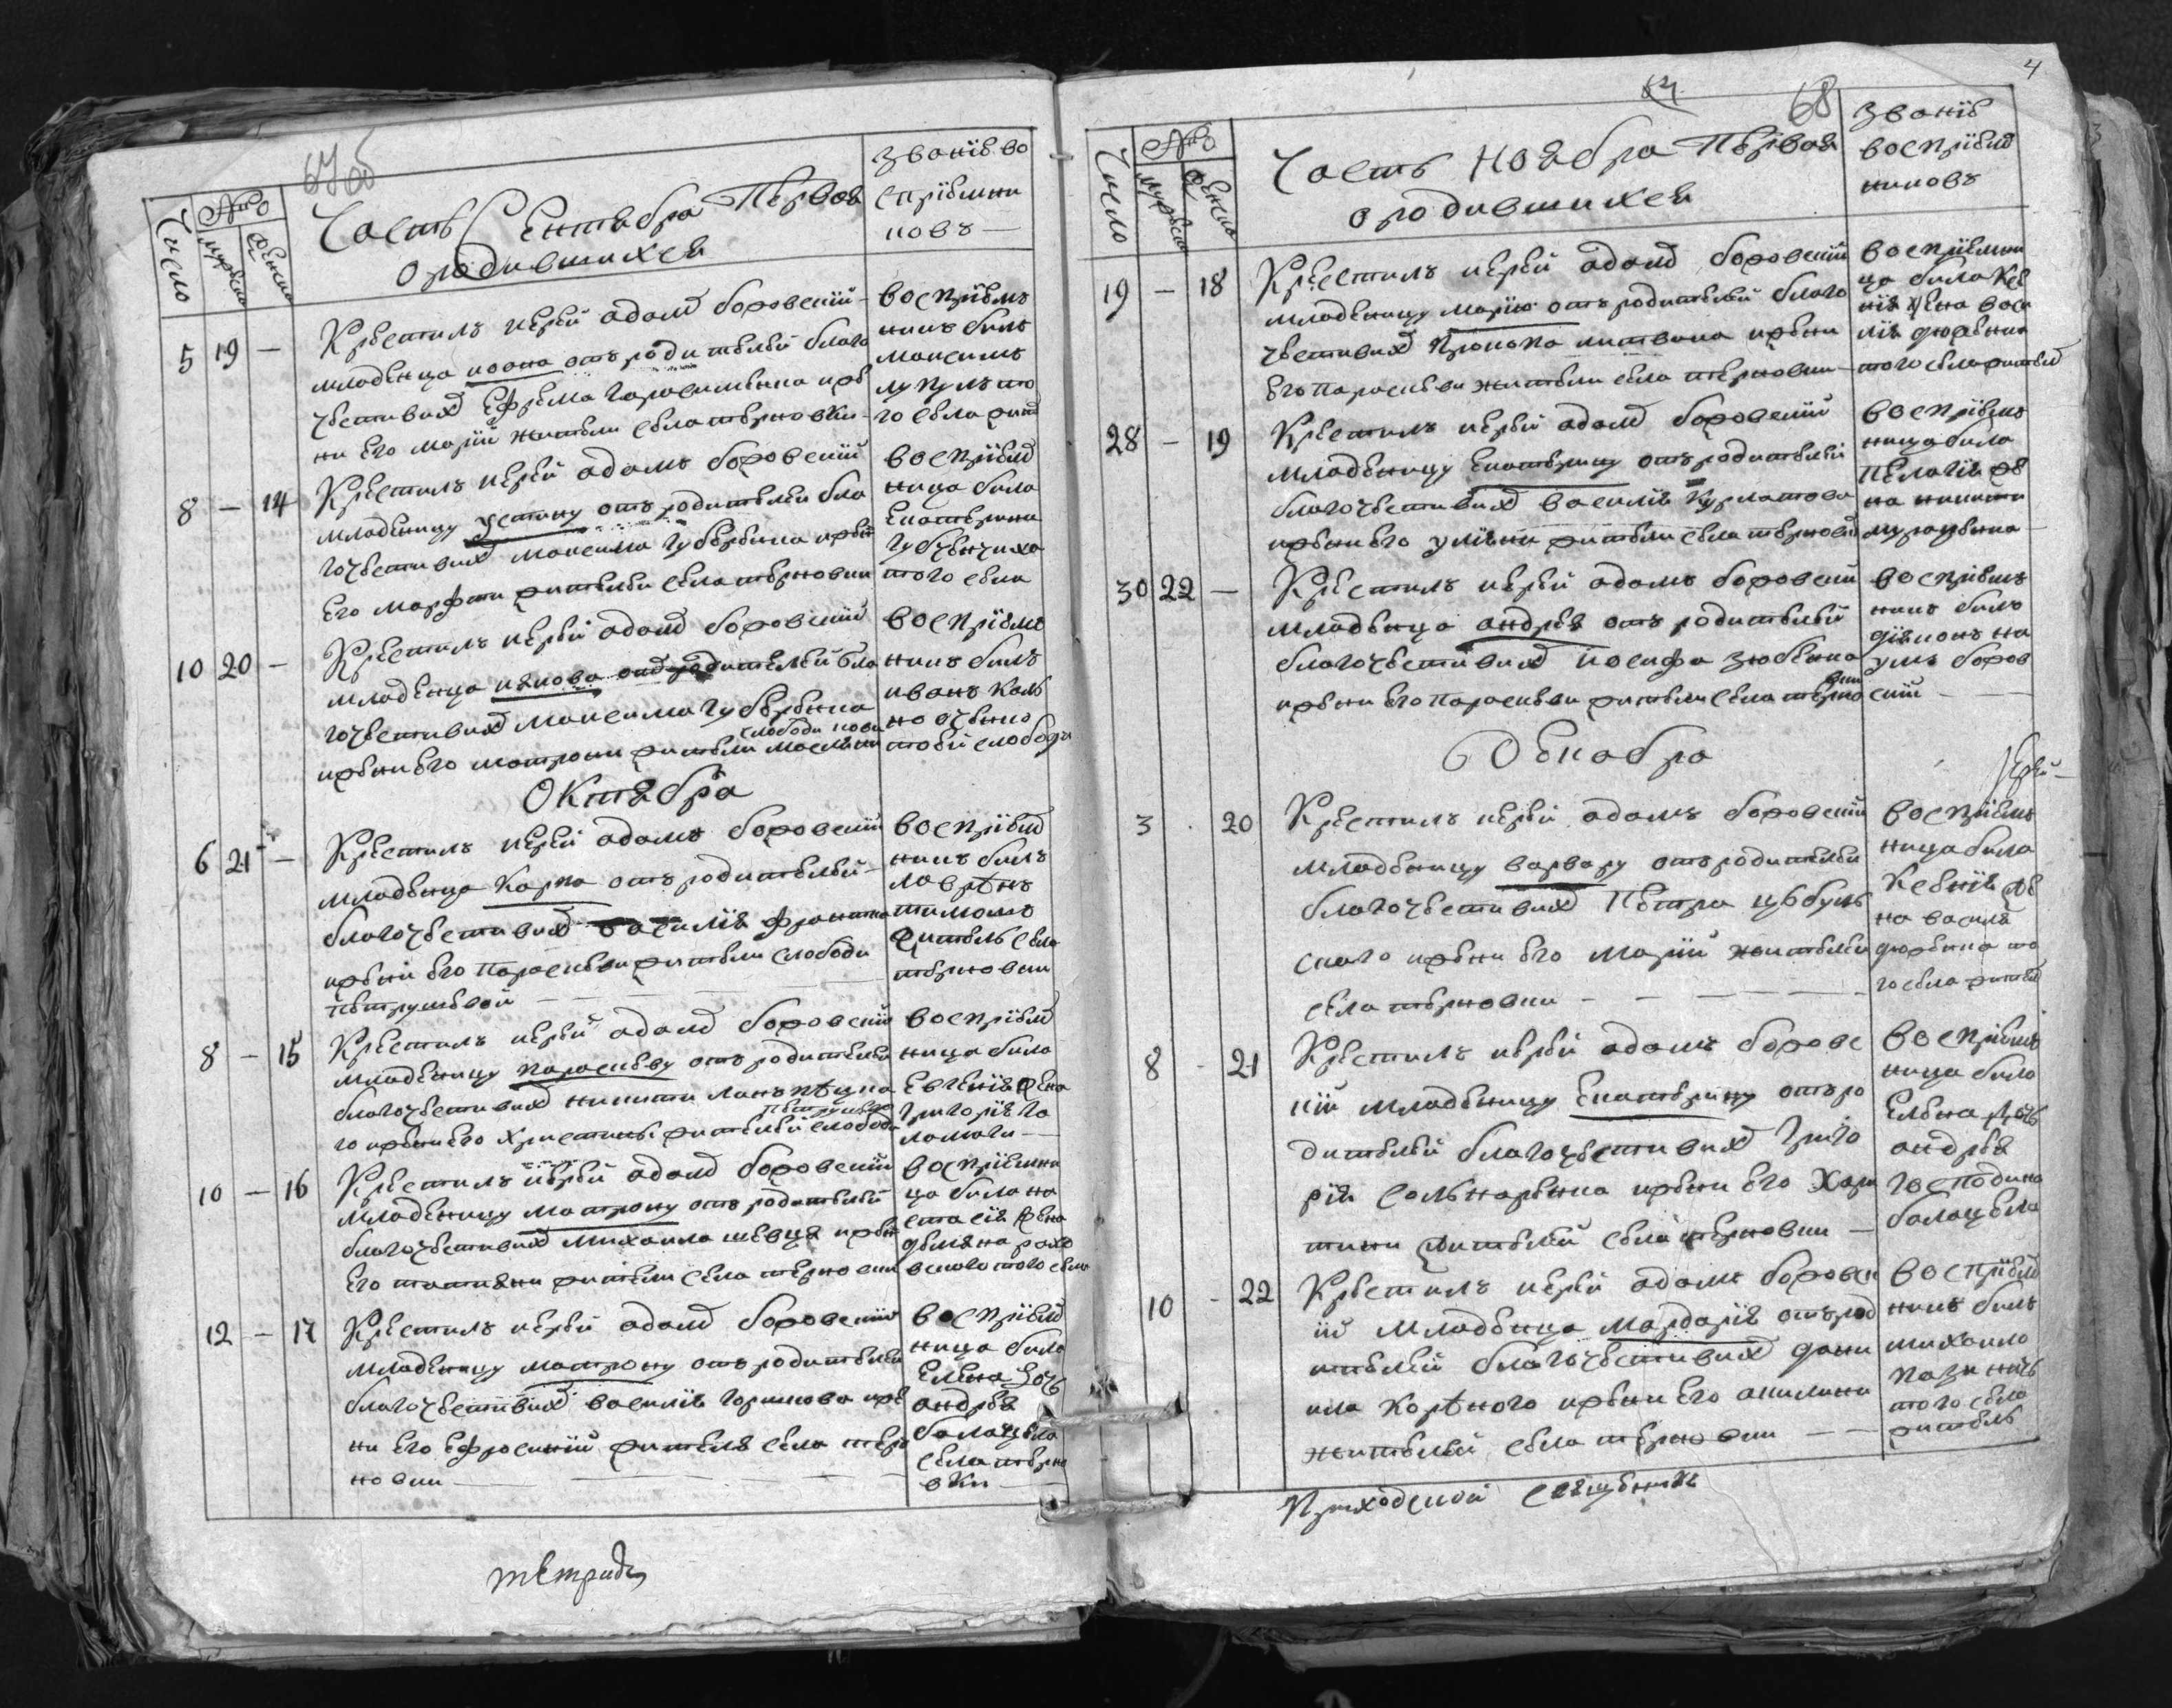 67об
Число
Лѣто
мужеска
женска
Часть Сентября Первая
о родившихся
званіе во
спріемни
ковъ —
5 19 —
Крестилъ иерей адамъ боровскій
младенца иоана отъ родителей благо
честивих Ефрема герасименка и же
ни его маріи жители села терновки
воспріемъ
никъ билъ
максимъ
то
го села жит
8 — 14
Крестилъ иерей адамъ боровскій
младеницу устину отъ родителей бла
гочестивих максима губербика и жени
его марфи жителей села терновки
воспріем
ница била
Екатерина
того села
10 20 —
Крестилъ иерей адамъ боровскій
младенца иякова от родителей бла
гочестивих максима губербика
и жени его матрони жители
слободи
воспріем
никъ билъ
иванъ
тоей слободи
Октября
6 21 —
Крестилъ иерей адамъ боровскій
младенца Карпа отъ родителей
благочестивих василія
и жени его параскеви жители слободи
петрушевой
воспріем
никъ билъ
лаврѣнъ
тимошъ
житель села
терновки
8 — 15
Крестилъ иерей адамъ боровскій
младеницу параскеву отъ родителей
благочестивих никити
го и жени его Христини жителей слободи
воспріем
ница била
Евгенія жена
григорія га
ламаги —
10 — 16
Крестилъ иерей адамъ боровскій
младеницу матрону отъ родителей
благочестивих михаила шевця и жени
его татияни жители села терновки
воспріемни
ца била на
стасія жена
демяна
того села
12 — 17
Крестилъ иерей адамъ боровскій
младеницу матрону отъ родителей
благочестивих василія горшкова и же
ни его Ефросиніи жителя села тер
новки —
воспріем
ница била
Елена дочь
андрея
балацела
села терно
вки
тетрадъ
4
68
Число
Лѣто
мужеска
женска
Часть Ноября Первая
о родившихся
званіе
воспріем
никовъ
19 — 18
Крестилъ иерей адамъ боровскій
младеницу марію отъ родителей благо
честивих Прокопа литвина и жени
его параскеви жители села терновки
воспріемни
ца била Ксе
нія жена васи
лія
того села жител
28 — 19
Крестилъ иерей адамъ боровскій
младеницу Екатерину отъ родителей
благочестивих василія Курлатова
и жени его уліяни жители села терновки
воспріем
ница била
Пелагія же
на никити
30 22 —
Крестилъ иерей адамъ боровскій
младенца андрея отъ родителей
благочестивих иосифа
и жени его параскеви жители села терно
вки
воспріем
никъ билъ
діяконъ на
умъ боров
скій —
Декабра
3 . 20
Крестилъ иерей адамъ боровскій
младеницу варвару отъ родителей
благочестивих Петра цебуль
скаго и жени его маріи жителей
села терновки —
воспріем
ница била
Ксенія же
на василя
то
го села жител
8 - 21
Крестилъ иерей адамъ боровс
кій младеницу Екатерину отъ ро
дителей благочестивих Григо
рія и жени его Хри
стини жителей села терновки —
воспріем
ница била
Елена дочь
андрея
господина
балацела
10 - 22
Крестилъ иерей адамъ боровск
ій младенца мардарія отъ род
ителей благочестивих дани
ила Корѣного и жени его акилини
жителей села терновки —
воспріем
никъ билъ
михаило
того села
житель
Приходской священикъ